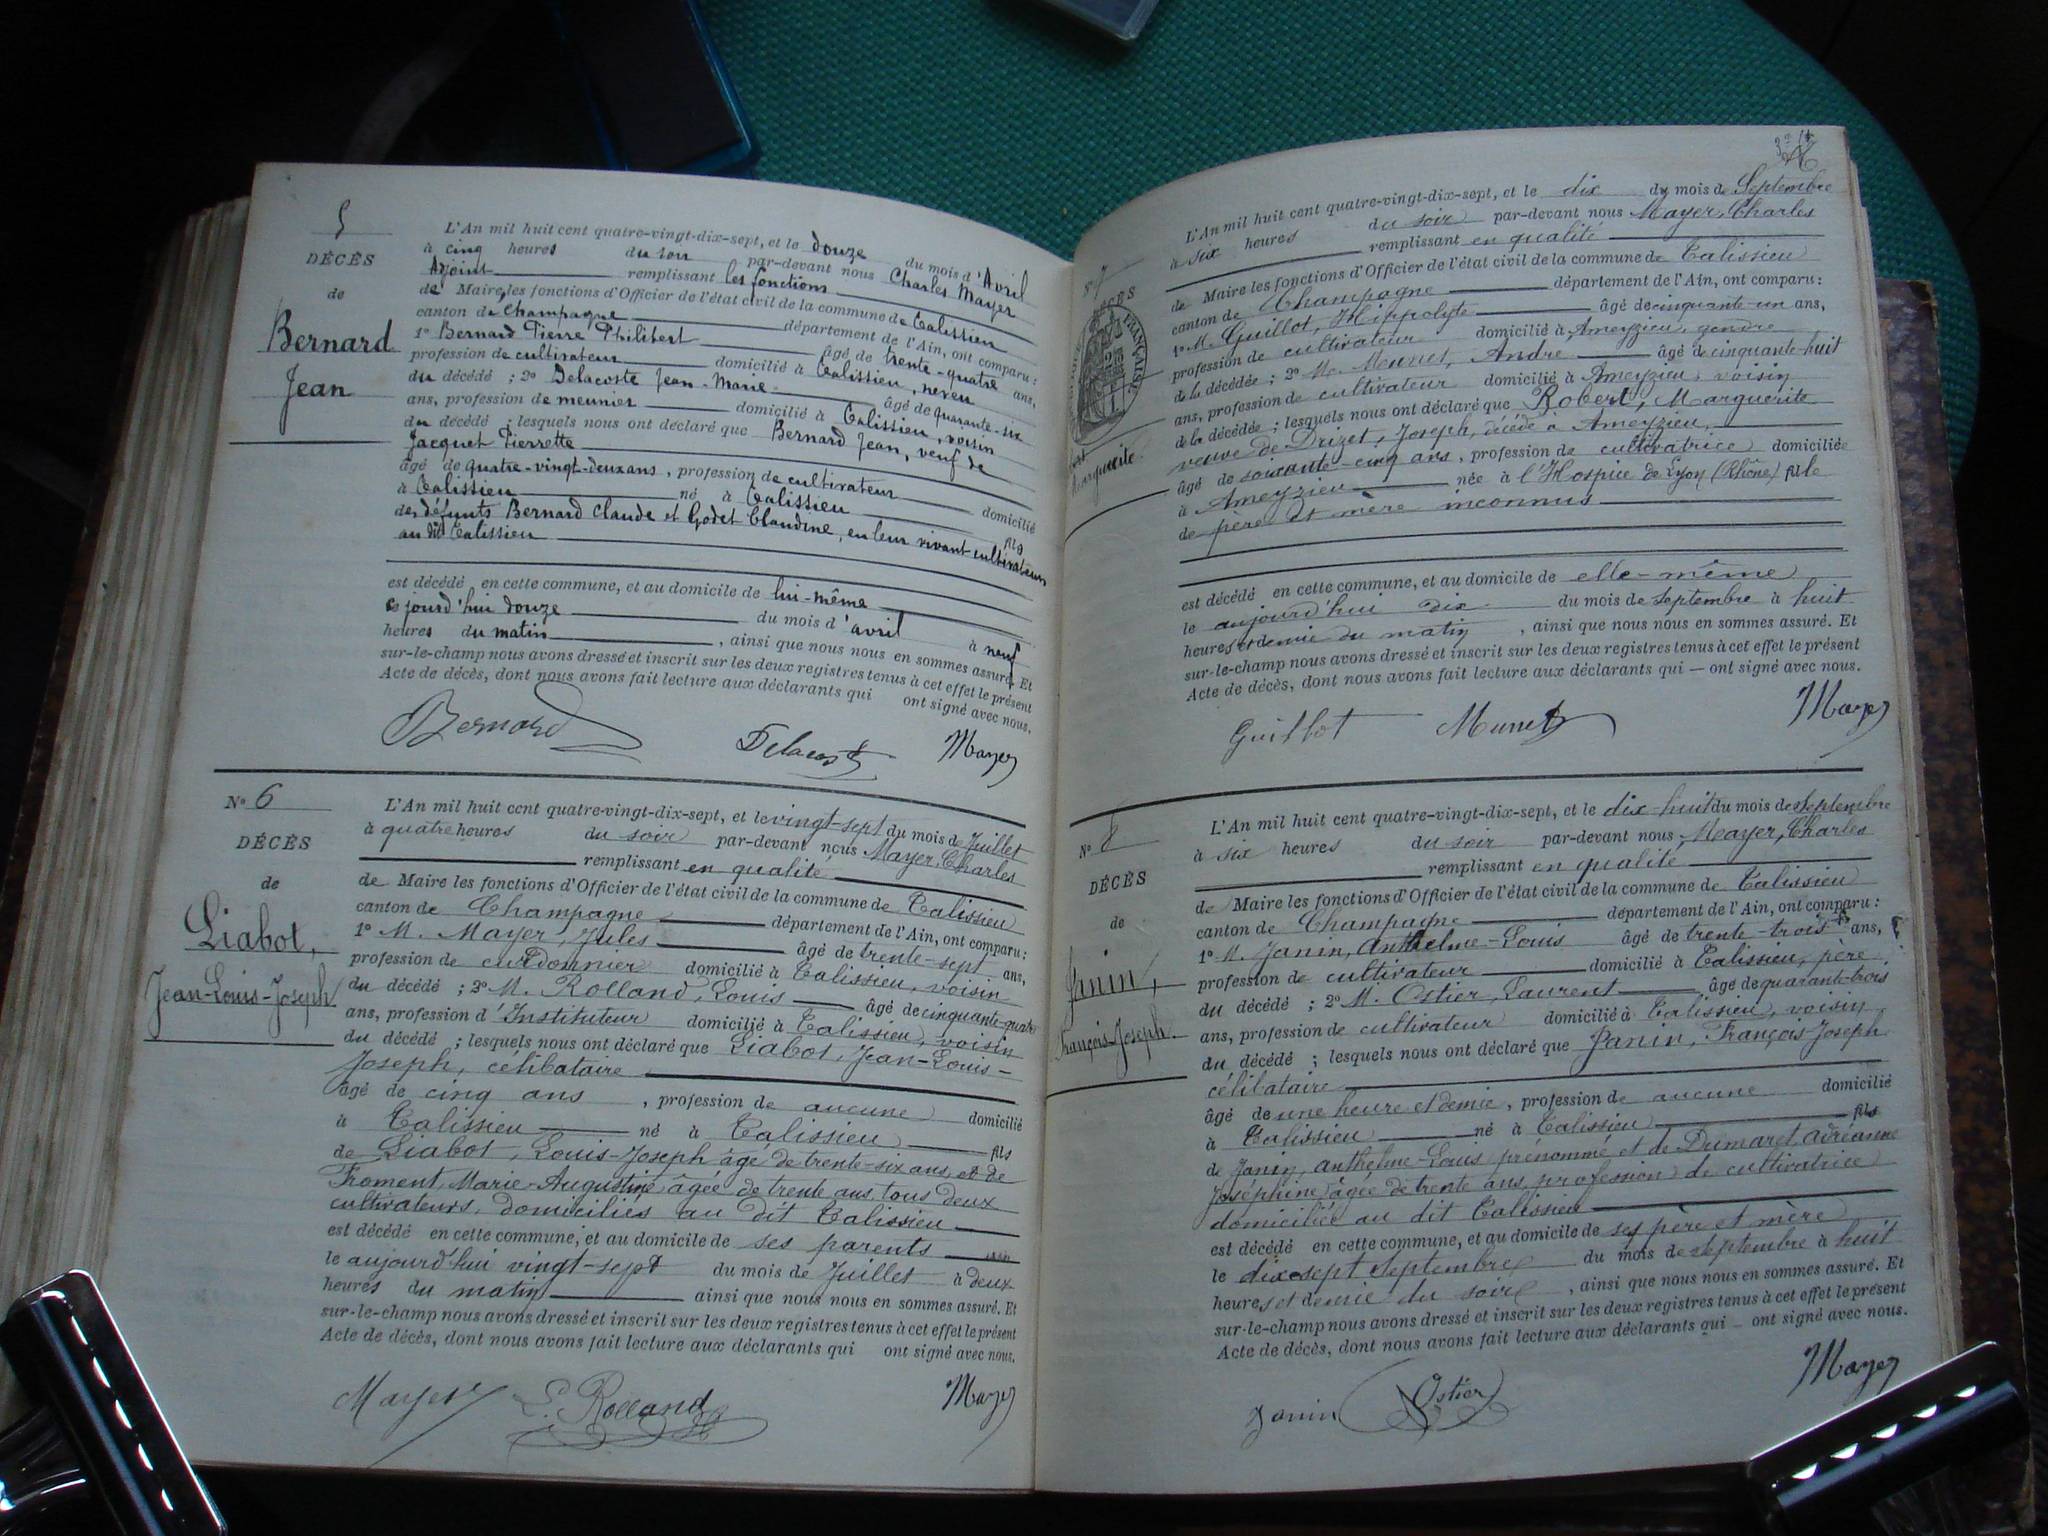 5
DÉCÈS
de
Bernard
Jean
L'An mil huit cent quatre-vingt-dix-sept, et le douze du mois d'Avril
à cinq heures du soir par-devant nous Charles Mayer
Adjoint remplissant les fonctions
de Maire, les fonctions d'Officier de l'état civil de la commune de Talissieu
canton de Champagne département de l'Ain, ont comparu :
1º Bernard Pierre Philibert âgé de trente-quatre ans,
profession de cultivateur domicilié à Talissieu, neveu
du décédé ; 2º Delacoste Jean-Marie âgé de quarante-six
ans, profession de meunier domicilié à Talissieu, voisin
du décédé ; lesquels nous ont déclaré que Bernard Jean, veuf de
Jacquet Pierrette
âgé de quatre-vingt-deux ans, profession de cultivateur domicilié
à Talissieu né à Talissieu fils
des défunts Bernard Claude et Godet Claudine, en leur vivant cultivateurs
au dit Talissieu
est décédé en cette commune, et au domicile de lui-même
ce jourd'hui douze du mois d'avril à neuf
heures du matin, ainsi que nous nous en sommes assuré. Et
sur-le-champ nous avons dressé et inscrit sur les deux registres tenus à cet effet le présent
Acte de décès, dont nous avons fait lecture aux déclarants qui ont signé avec nous.
Bernard Delacoste Mayer
Nº 6
DÉCÈS
de
Liabot,
Jean-Louis-Joseph
L'An mil huit cent quatre-vingt-dix-sept, et le vingt-sept du mois de Juillet
à quatre heures du soir par-devant nous Mayer, Charles
remplissant en qualité
de Maire les fonctions d'Officier de l'état civil de la commune de Talissieu
canton de Champagne département de l'Ain, ont comparu :
1º M. Mayer, Jules âgé de trente-sept ans,
profession de cordonnier domicilié à Talissieu, voisin
du décédé ; 2º M. Rolland, Louis âgé de cinquante-quatre
ans, profession d'Instituteur domicilié à Talissieu, voisin
du décédé ; lesquels nous ont déclaré que Liabot, Jean-Louis-
Joseph, célibataire
âgé de cinq ans, profession de aucune domicilié
à Talissieu né à Talissieu fils
de Liabot, Louis-Joseph âgé de trente-six ans, et de
Froment, Marie-Augustine âgée de trente ans, tous deux
cultivateurs, domiciliés au dit Talissieu
est décédé en cette commune, et au domicile de ses parents
le aujourd'hui vingt-sept du mois de Juillet à deux
heures du matin ainsi que nous nous en sommes assuré. Et
sur-le-champ nous avons dressé et inscrit sur les deux registres tenus à cet effet le présent
Acte de décès, dont nous avons fait lecture aux déclarants qui ont signé avec nous.
Mayer L. Rolland Mayer
Nº 7
DÉCÈS
FRANÇAISE
Marguerite
L'An mil huit cent quatre-vingt-dix-sept, et le dix du mois de Septembre
à six heures du soir par-devant nous Mayer, Charles
remplissant en qualité
de Maire les fonctions d'Officier de l'état civil de la commune de Talissieu
canton de Champagne département de l'Ain, ont comparu :
1º M. Guillot, Hippolyte âgé de cinquante-un ans,
profession de cultivateur domicilié à Ameyzieu, gendre
de la décédée ; 2º M. Meunet, André âgé de cinquante-huit
ans, profession de cultivateur domicilié à Ameyzieu, voisin
de la décédée ; lesquels nous ont déclaré que Robert, Marguerite
veuve de Drizet, Joseph, décédé à Ameyzieu,
âgé de soixante-cinq ans, profession de cultivatrice domiciliée
à Ameyzieu née à l'Hospice de Lyon (Rhône) fille
de père et mère inconnus
est décédé en cette commune, et au domicile de elle-même
le aujourd'hui dix du mois de septembre à huit
heures et demie du matin, ainsi que nous nous en sommes assuré. Et
sur-le-champ nous avons dressé et inscrit sur les deux registres tenus à cet effet le présent
Acte de décès, dont nous avons fait lecture aux déclarants qui — ont signé avec nous.
Guillot Munet Mayer
Nº 8
DÉCÈS
de
Janin,
François-Joseph
L'An mil huit cent quatre-vingt-dix-sept, et le dix-huit du mois de Septembre
à six heures du soir par-devant nous Mayer, Charles
remplissant en qualité
de Maire les fonctions d'Officier de l'état civil de la commune de Talissieu
canton de Champagne département de l'Ain, ont comparu :
1º M. Janin, Anthelme-Louis âgé de trente-trois ans,
profession de cultivateur domicilié à Talissieu, père
du décédé ; 2º M. Ostier, Laurent âgé de quarante-trois
ans, profession de cultivateur domicilié à Talissieu, voisin
du décédé ; lesquels nous ont déclaré que Janin, François-Joseph
célibataire
âgé de une heure et demie, profession de aucune domicilié
à Talissieu né à Talissieu fils
de Janin, Anthelme-Louis prénommé et de Dumaret Adréanne
Joséphine âgée de trente ans, profession de cultivatrice
domiciliée au dit Talissieu
est décédé en cette commune, et au domicile de ses père et mère
le dix-sept Septembre du mois de septembre à huit
heures et demie du soir, ainsi que nous nous en sommes assuré. Et
sur-le-champ nous avons dressé et inscrit sur les deux registres tenus à cet effet le présent
Acte de décès, dont nous avons fait lecture aux déclarants qui — ont signé avec nous.
Janin Ostier Mayer